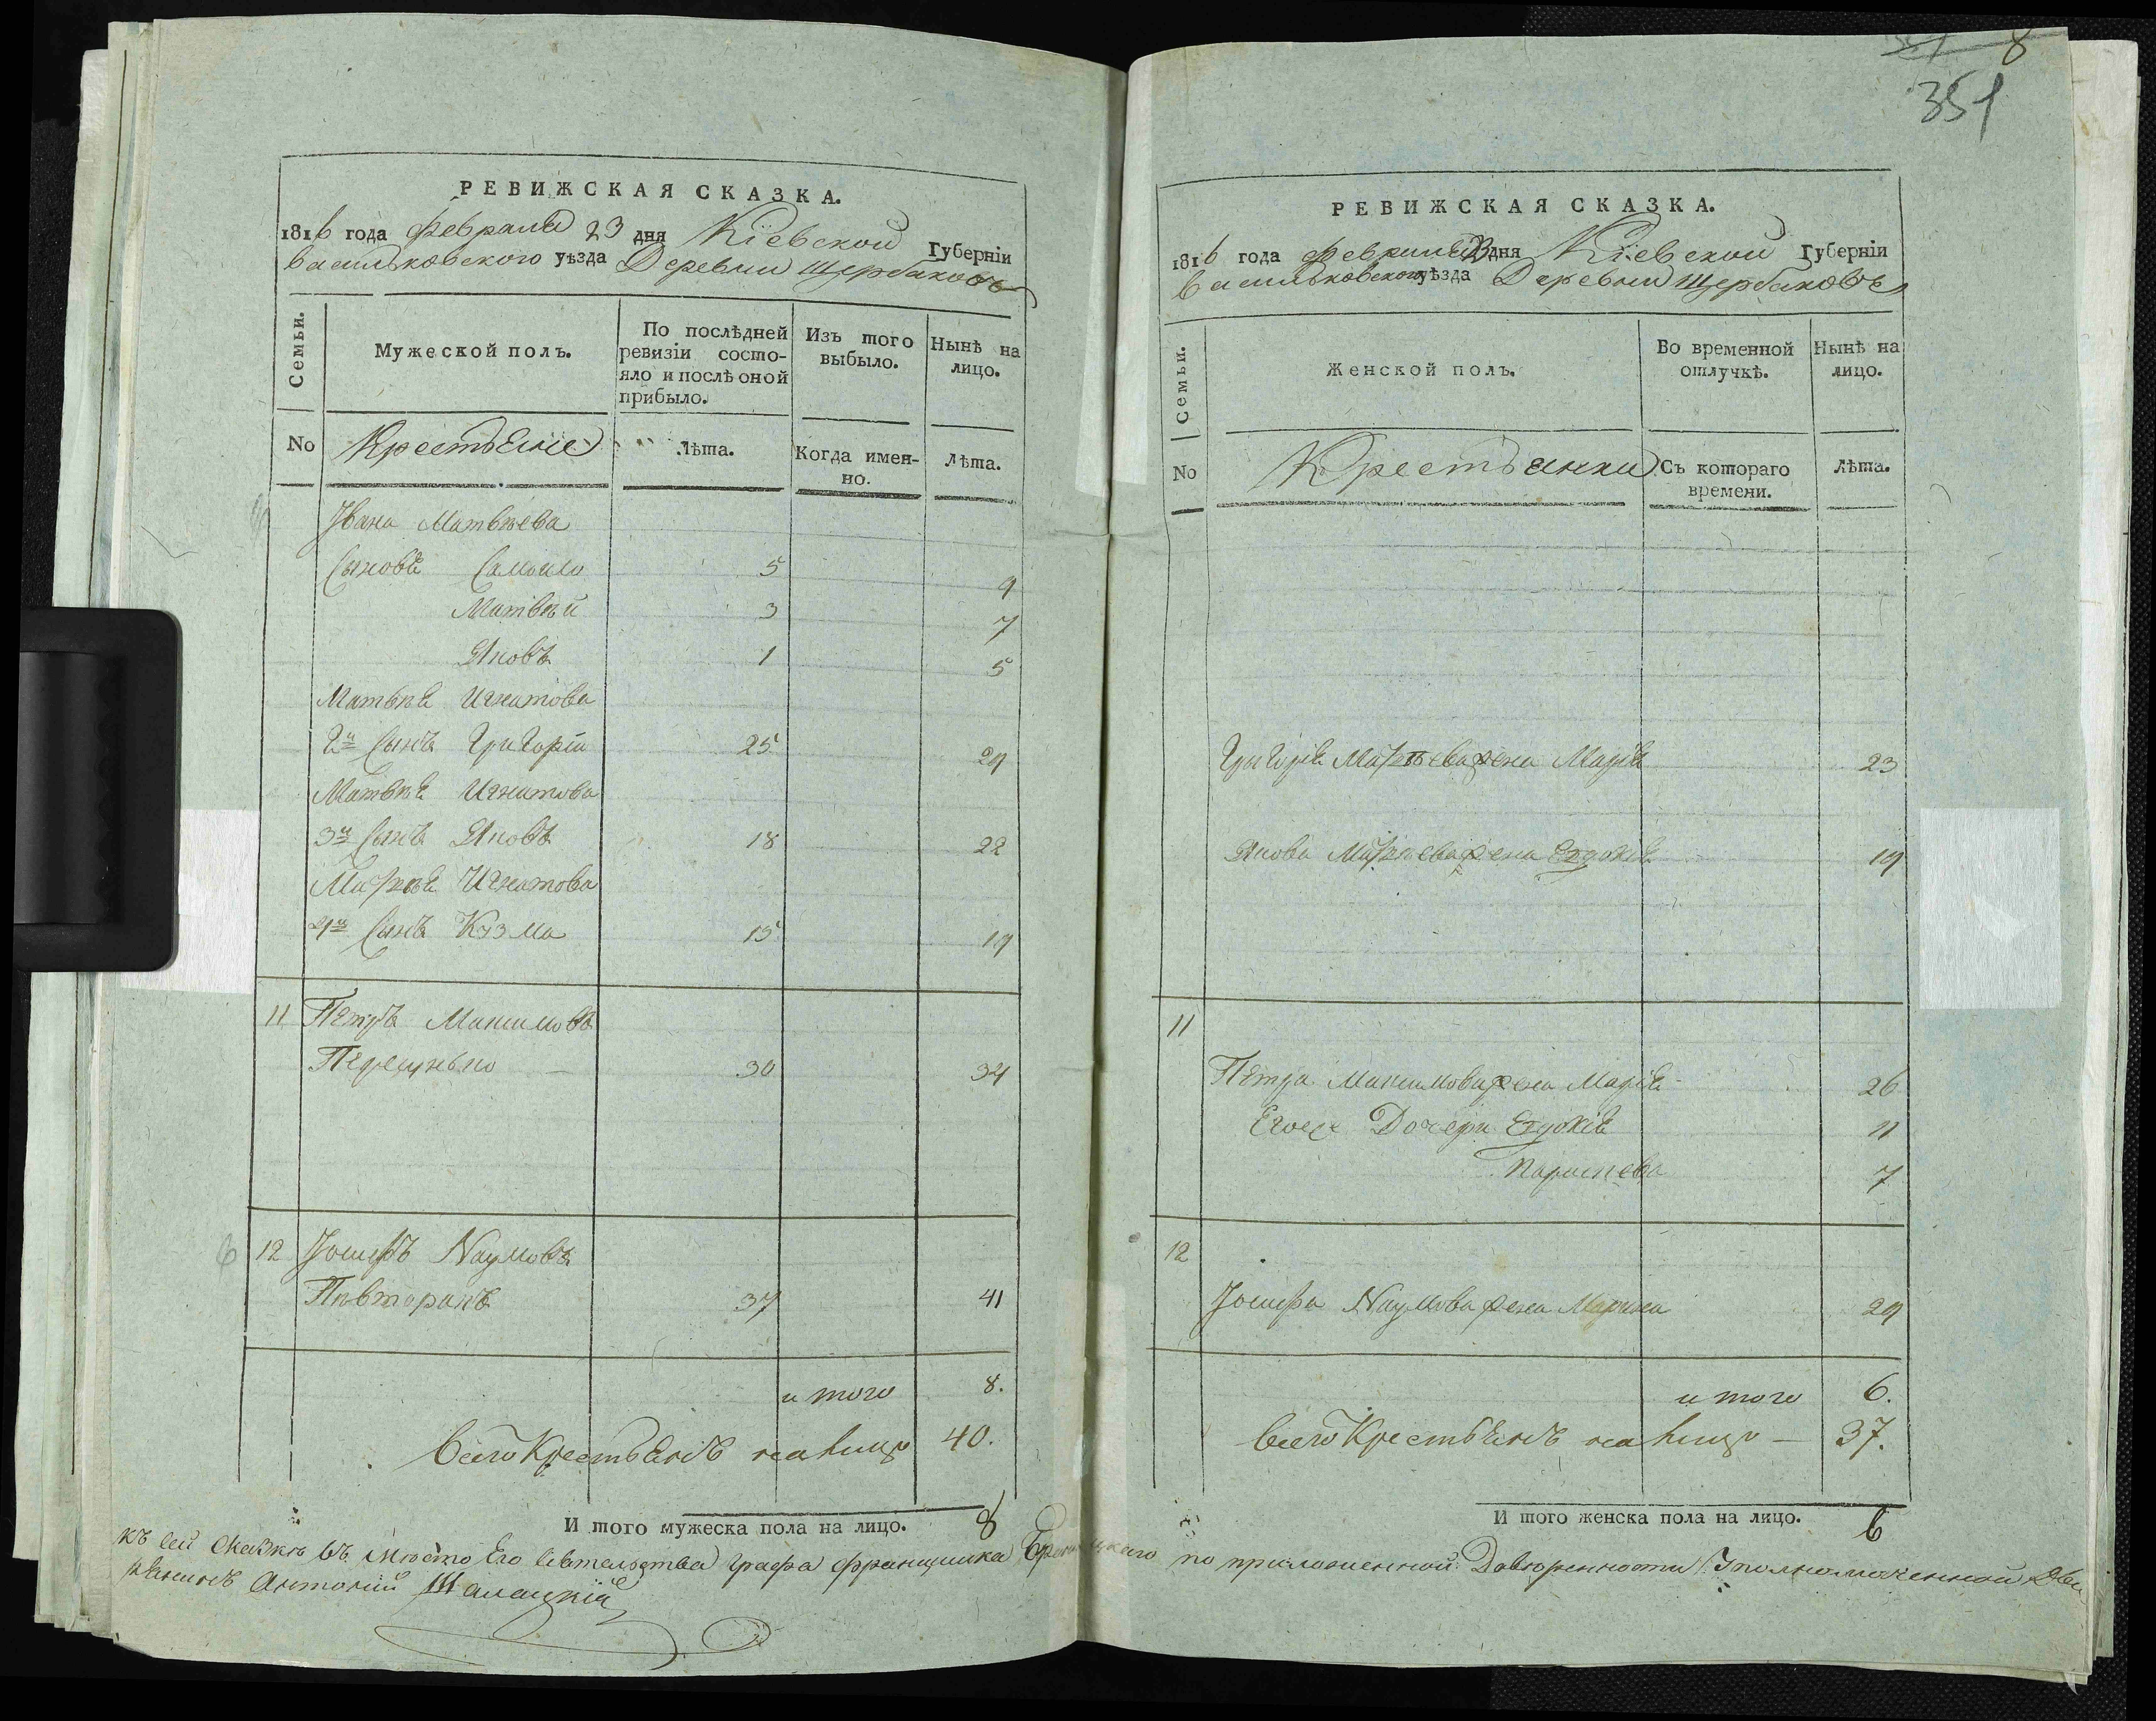 РЕВИЖСКАЯ СКАЗКА.
1816 года Февраля 23 дня Кіевской Губерніи
Васильковского уѣзда Деревни Щербаковъ
Семьи.
Мужеской полъ.
По послѣдней ревизіи состояло и послѣ оной прибыло.
Изъ того выбыло.
Нынѣ на лицо.
No
Крестьяне
Лѣта.
Когда именно.
Лѣта.
Ивана Матвѣева
Сыновя Самойло 5 9
Матвѣй 3 7
Яковъ 1 5
Матвѣя Игнатова
2й Сынъ Григорій 25 29
Матвѣя Игнатова
3й Сынъ Яковъ 18 22
Матвѣя Игнатова
4й Сынъ Кузма 15 19
11 Петръ Максимовъ
30 34
12 Іосифъ Наумовъ
Пивторакъ 37 41
итого 8.
Всего Крестьянъ налицо 40.
И того мужеска пола на лицо. 8
8
351
РЕВИЖСКАЯ СКАЗКА.
1816 года Февраля 23 дня Кіевской Губерніи
Васильковского уѣзда Деревни Щербаковъ
Семьи.
Женской полъ.
Во временной отлучкѣ.
Нынѣ на лицо.
No
Крестьянки
Съ котораго времени.
Лѣта.
Григорія Матвѣева жена Марія 23
Якова Матвѣева жена Евдокія 19
11
Петра Максимова жена Марія 26
Егоже Дочери Евдокія 11
7
12
Іосифа Наумова жена Марина 29
итого 6.
Всего Крестьянъ налицо — 37.
И того женска пола на лицо. 6
Къ сей Сказкѣ въ мѣсто Его Сіятельства Графа Францишка Браницкаго по приложенной Довѣренности Уполномоченной
Антоній